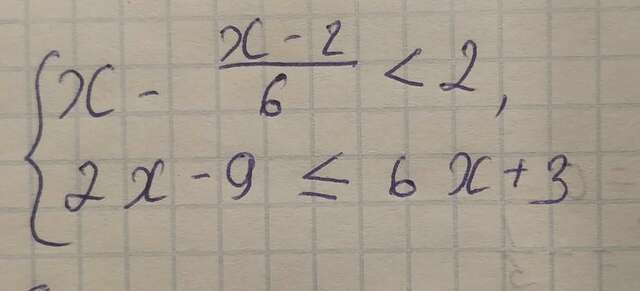 { x - (x - 2)/6 < 2,
2x - 9 ≤ 6x + 3